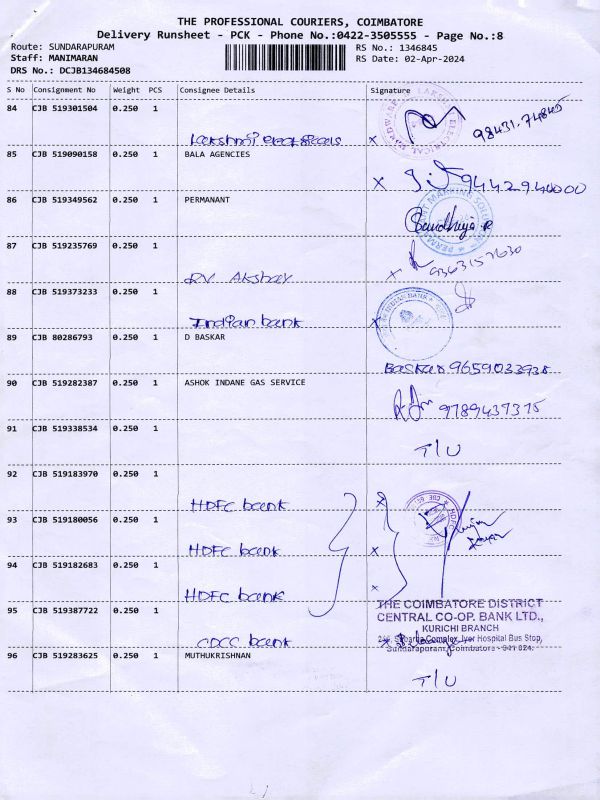 THE PROFESSIONAL COURIERS, COIMBATORE
Delivery Runsheet - PCK - Phone No.:0422-3505555 - Page No.:8
Route: SUNDARAPURAM RS No.: 1346845
Staff: MANIMARAN RS Date: 02-Apr-2024
DRS No.: DCJB134684508
S No Consignment No Weight PCS Consignee Details Signature
84 CJB 519301504 0.250 1
Lakshmi electricals x 98431.74845
85 CJB 519090158 0.250 1 BALA AGENCIES
x 9442940000
86 CJB 519349562 0.250 1 PERMANANT
Sandhiya.R
87 CJB 519235769 0.250 1
RV Akshay x 9363157630
88 CJB 519373233 0.250 1
Indian bank x
89 CJB 80286793 0.250 1 D BASKAR
Baskar 9659033938
90 CJB 519282387 0.250 1 ASHOK INDANE GAS SERVICE
9789437375
91 CJB 519338534 0.250 1
T/U
92 CJB 519183970 0.250 1
HDFC bank x
93 CJB 519180056 0.250 1
HDFC bank x
94 CJB 519182683 0.250 1
HDFC bank x
95 CJB 519387722 0.250 1
THE COIMBATORE DISTRICT
CENTRAL CO-OP. BANK LTD.,
KURICHI BRANCH
Complex, Iyer Hospital Bus Stop,
CDCC bank x
Sundarapuram, Coimbatore - 641 024.
96 CJB 519283625 0.250 1 MUTHUKRISHNAN
T/U